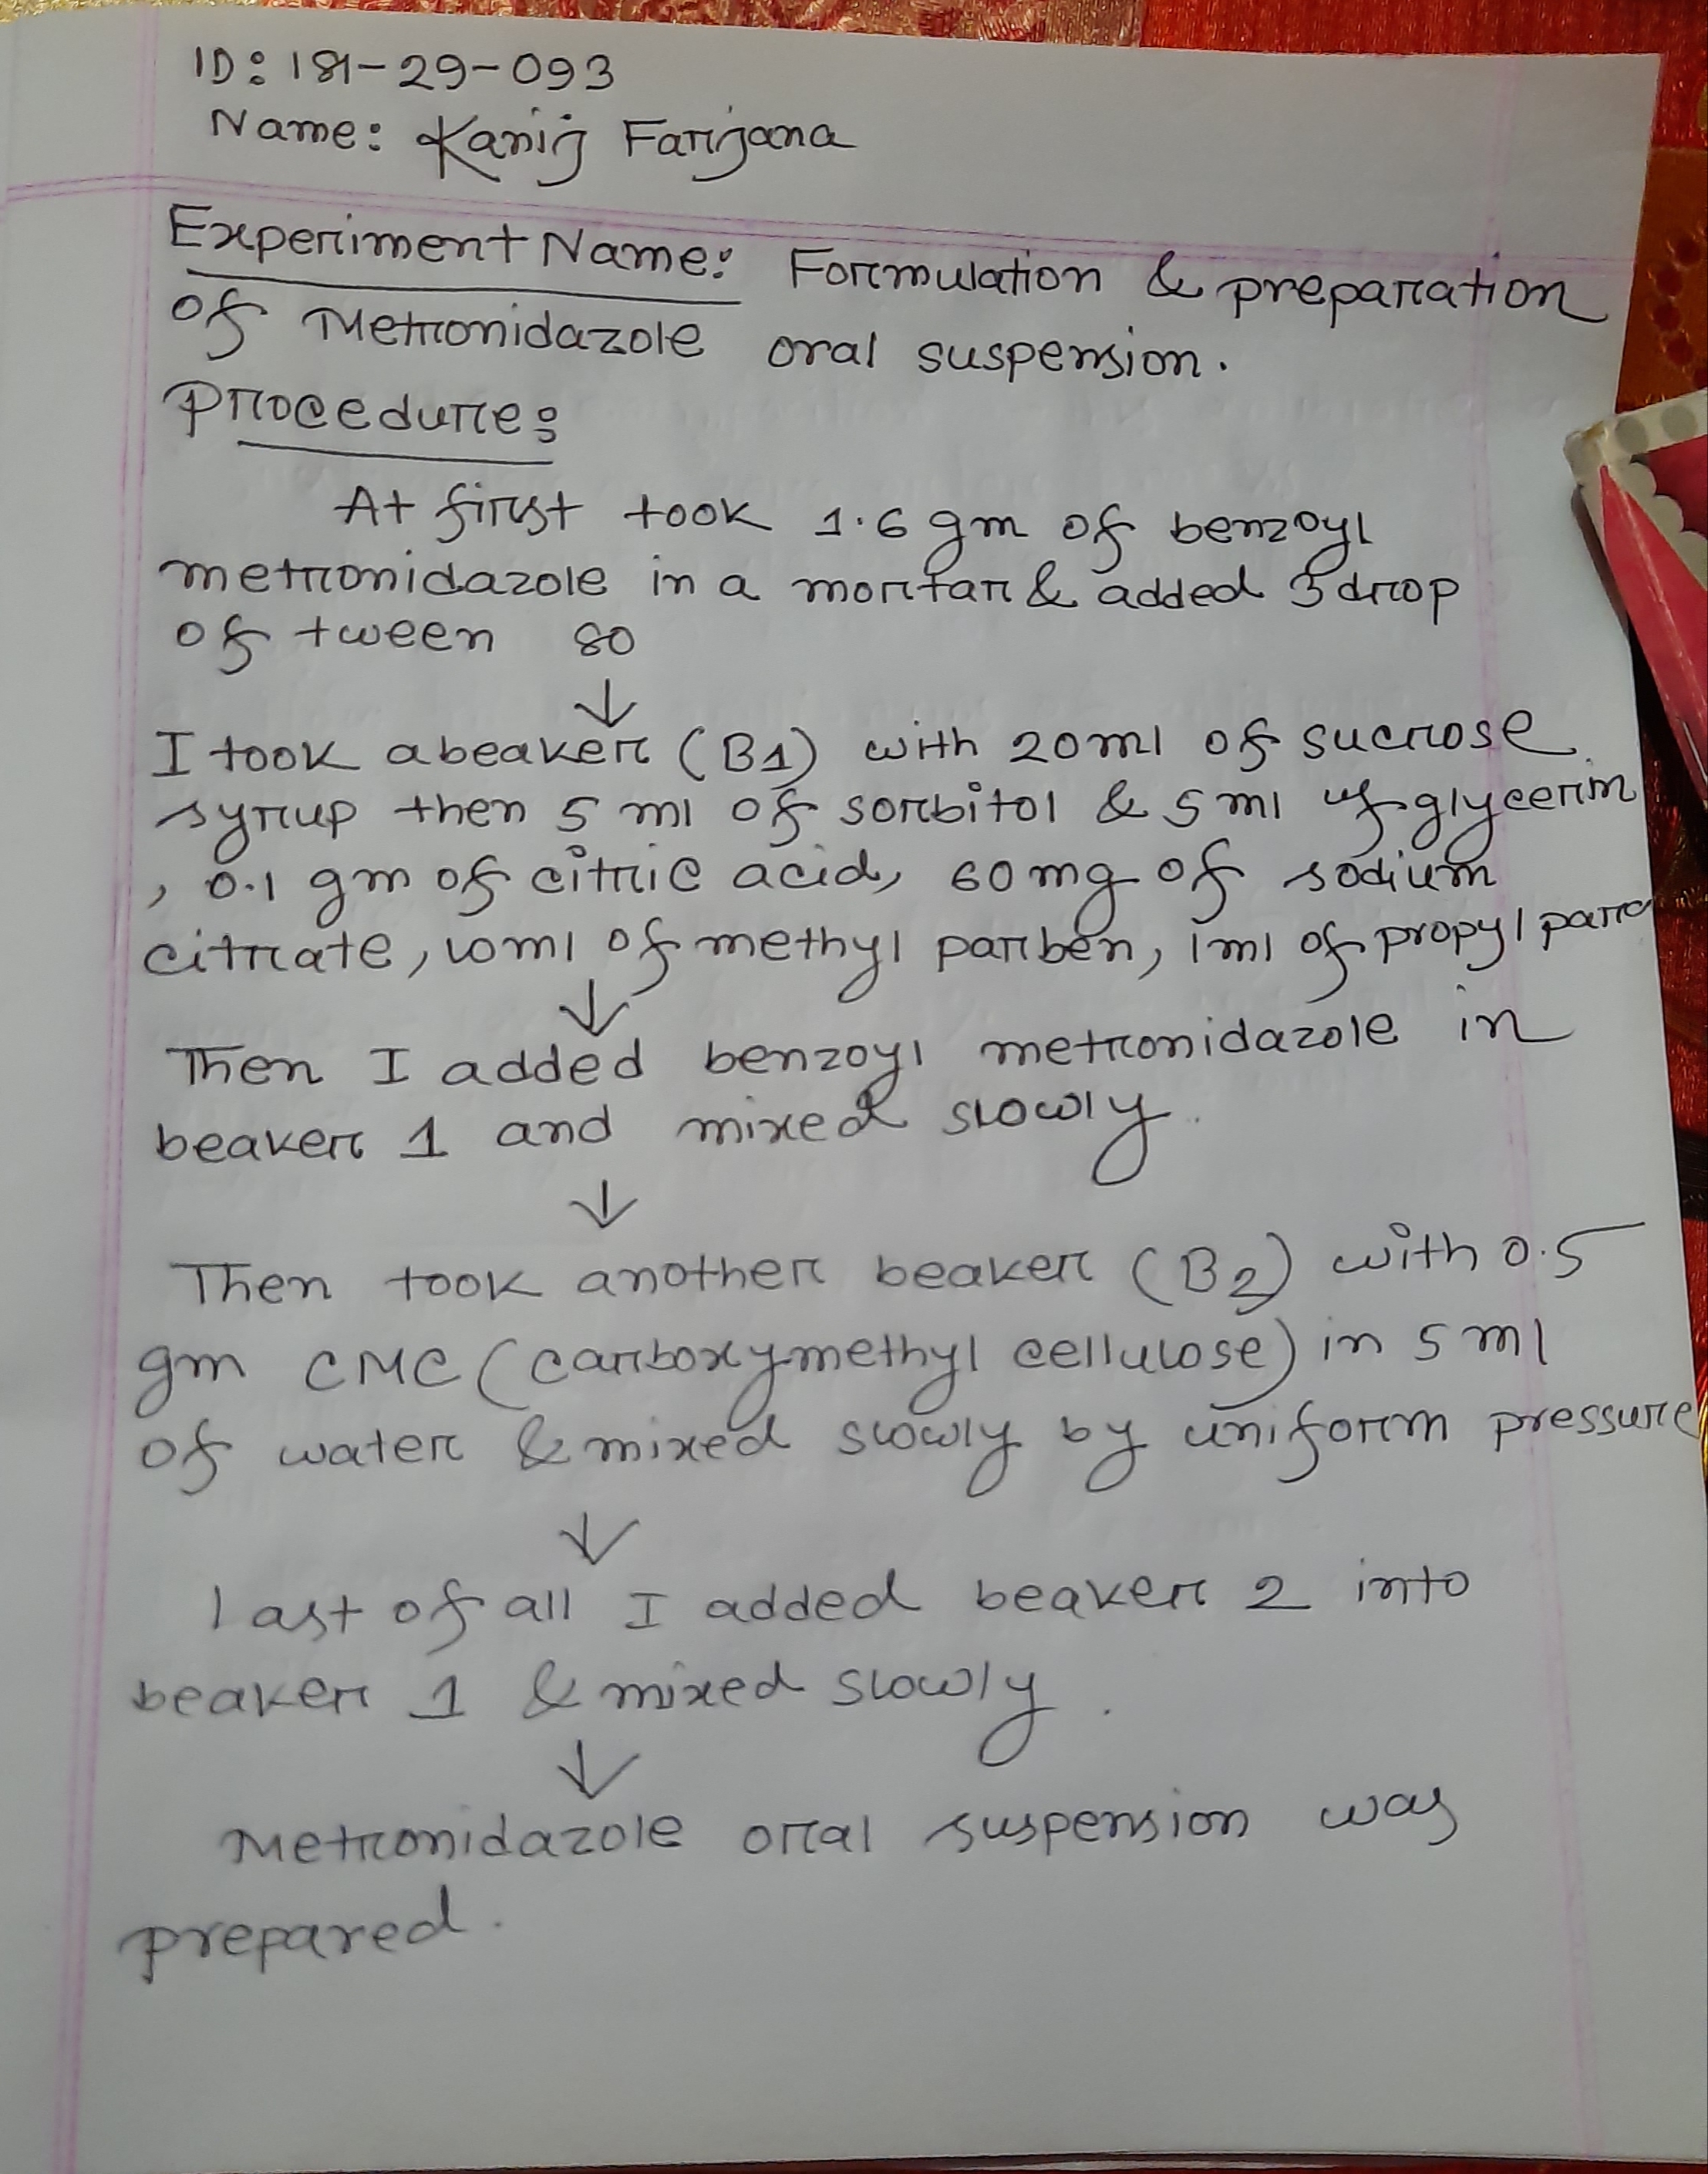 ID: 181-29-093
Name: Kanij Farjana
Experiment Name: Formulation & preparation
of Metronidazole oral suspension.
Procedure:
At first took 1.6 gm of benzoyl
metronidazole in a mortar & added 3 drop
of tween 80
↓
I took a beaker (B1) with 20ml of sucrose
syrup then 5 ml of sorbitol & 5 ml of glycerin
, 0.1 gm of citric acid, 60 mg of sodium
citrate, 10ml of methyl parben, 1ml of propyl para
↓
Then I added benzoyl metronidazole in
beaker 1 and mixed slowly.
↓
Then took another beaker (B2) with 0.5
gm CMC (carboxymethyl cellulose) in 5 ml
of water & mixed slowly by uniform pressure
↓
Last of all I added beaker 2 into
beaker 1 & mixed slowly.
↓
Metronidazole oral suspension was
prepared.